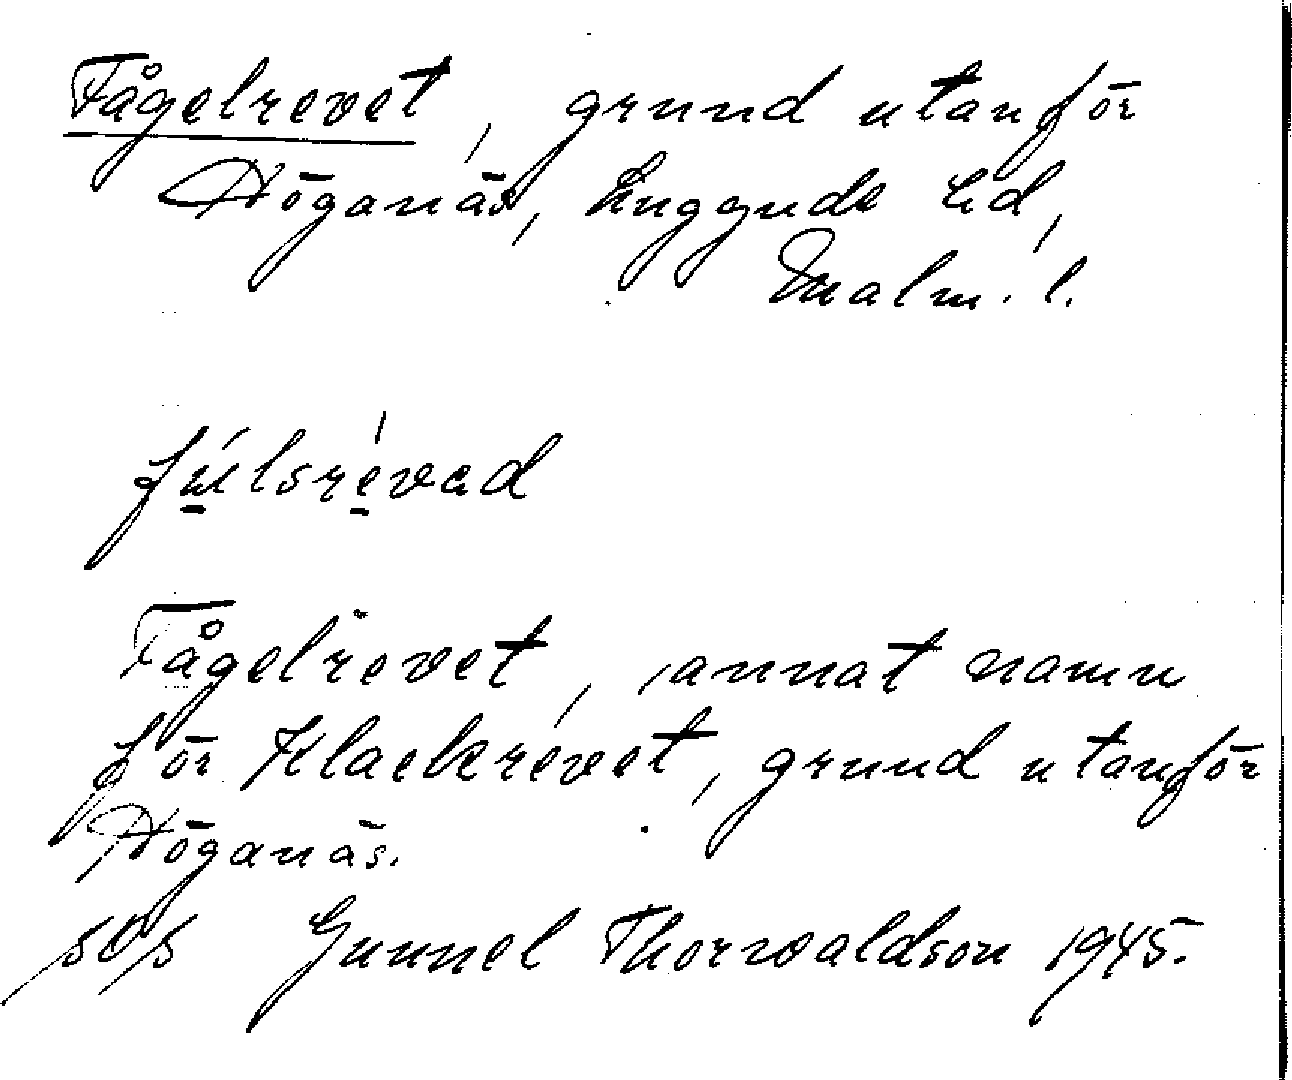 Fågelrevet, grund utanför
Höganäs, Luggude hd,
Malm. l.
fúlsrévad
Fågelrevet, annat namn
för Klackrevet, grund utanför
Höganäs.
Gunnel Thorwaldson 1945.